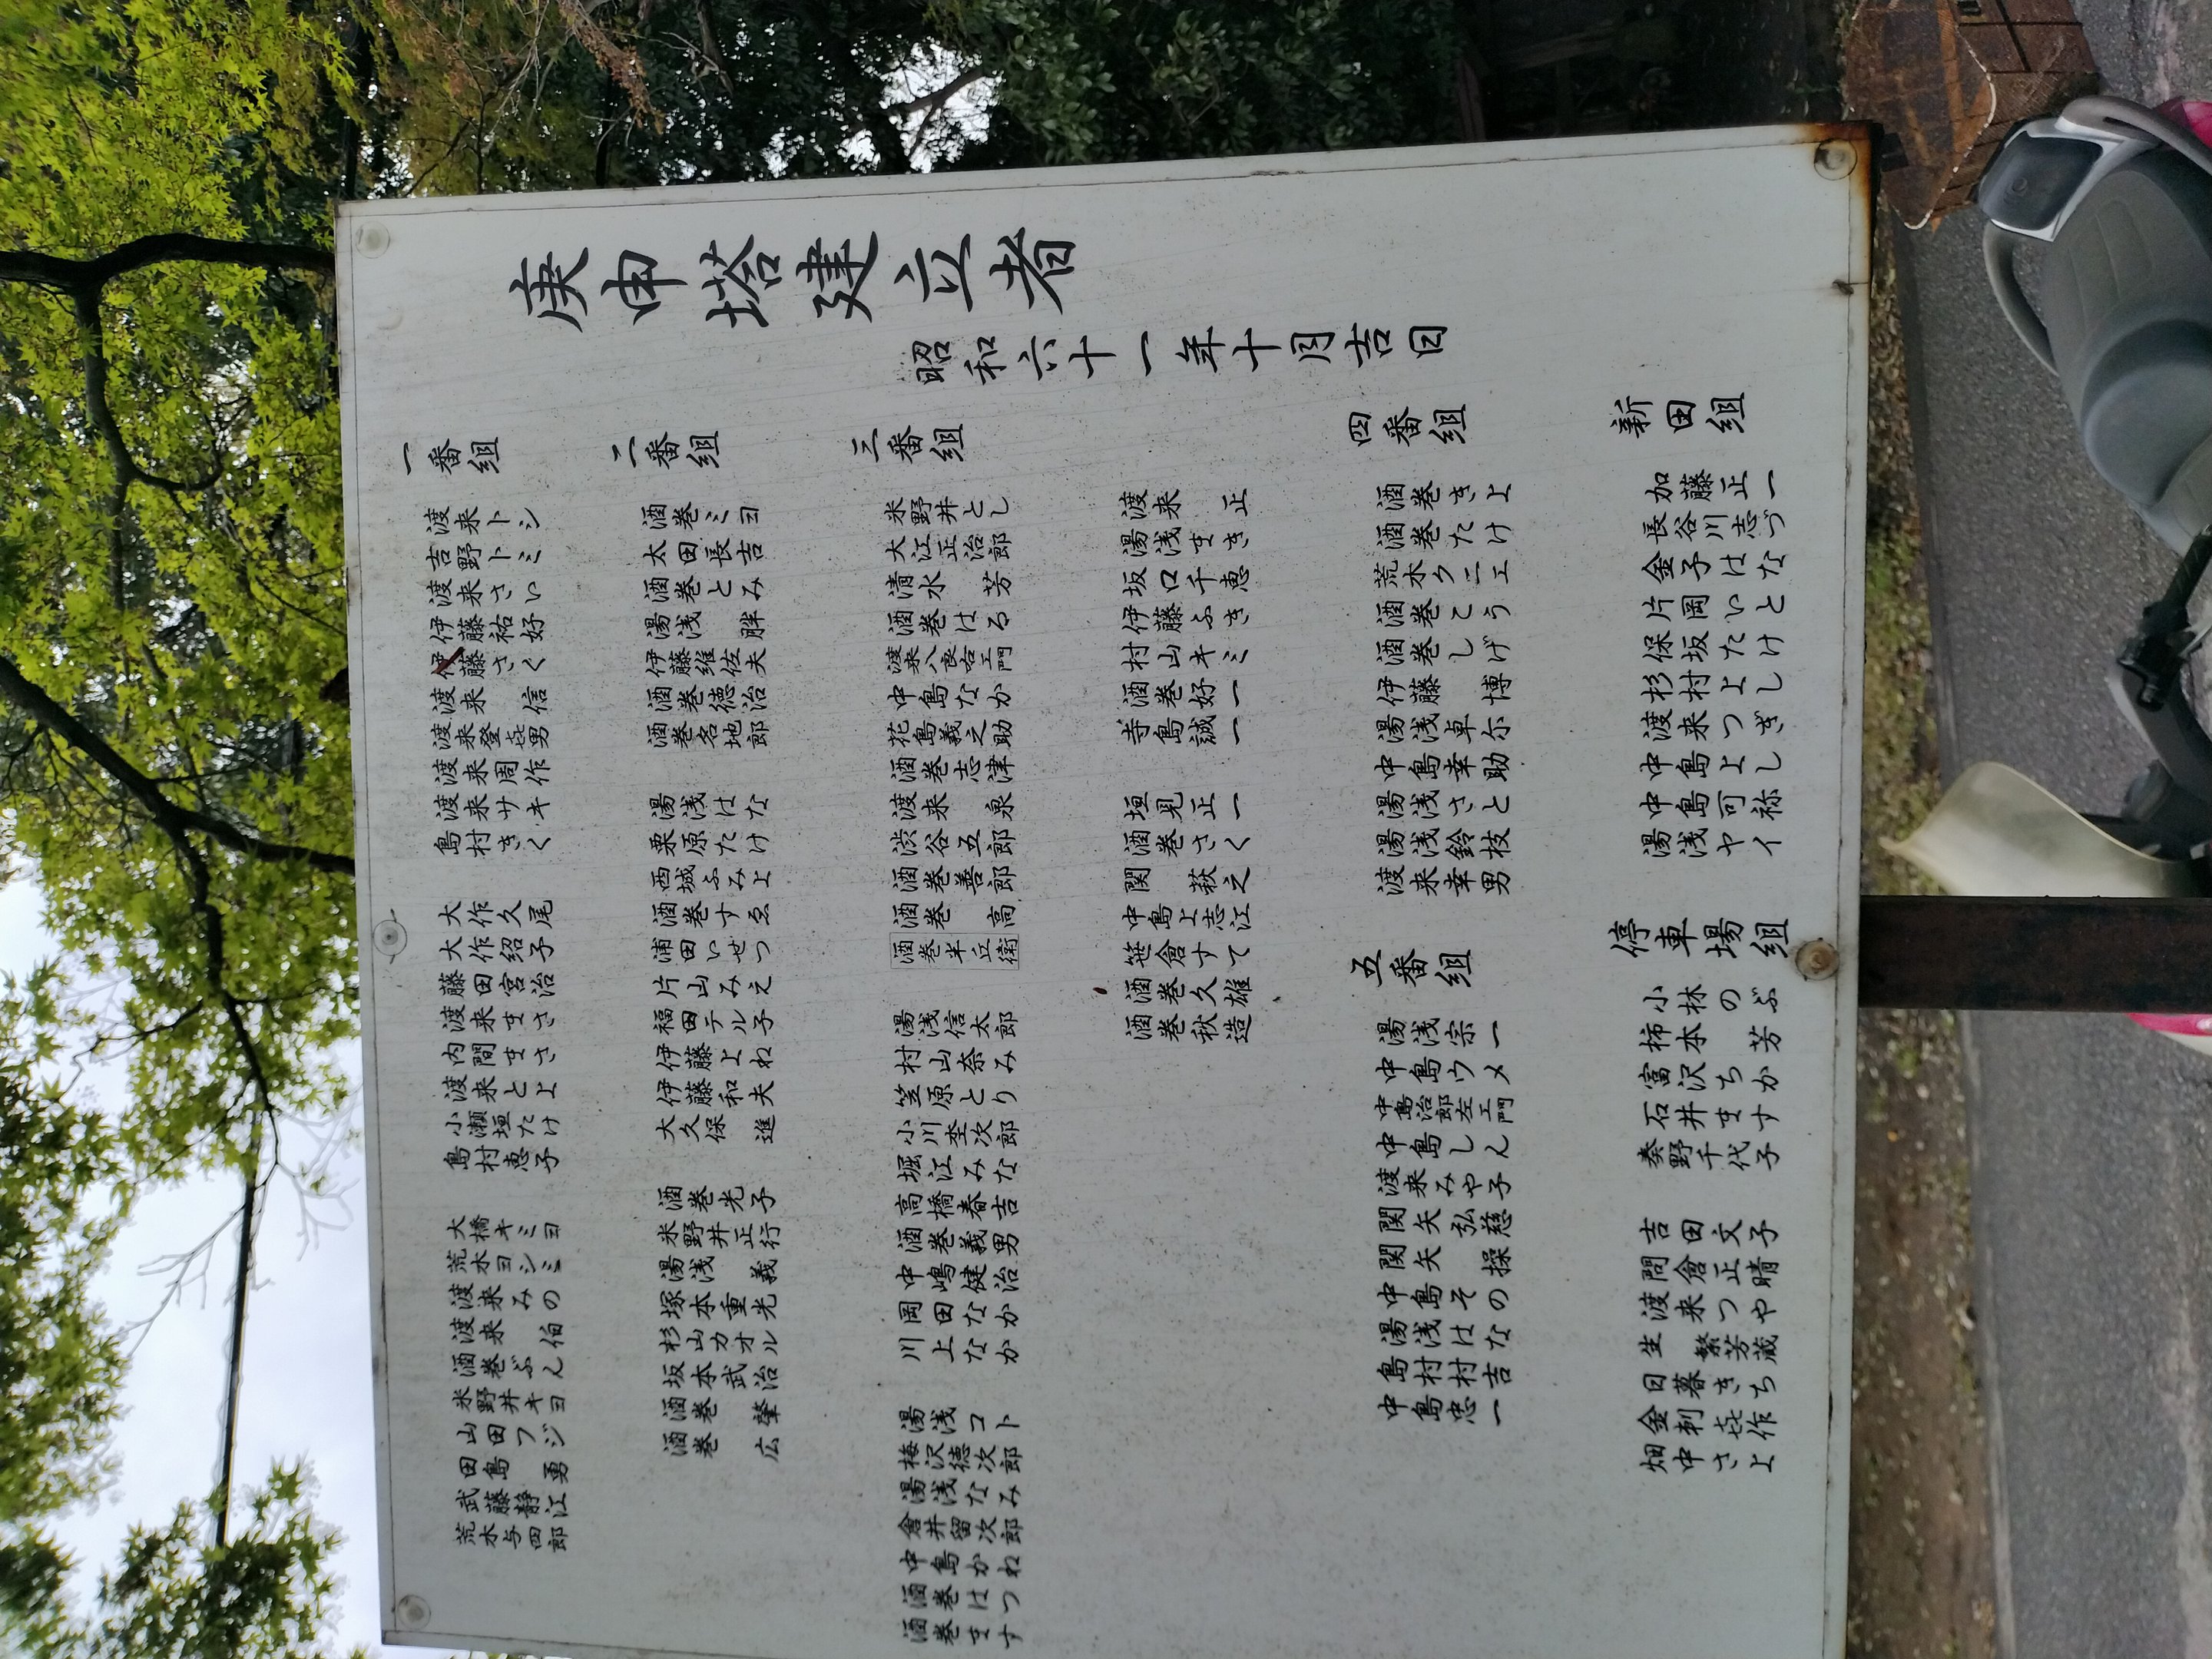 庚申塔建立者
昭和六十一年十月吉日
一番組
渡来トシ
吉野トミ
渡来さい
伊藤祐好
伊藤さく
渡来信
渡来登㐂男
渡来周作
渡来サキ
島村きく
大作久尾
大作紹子
藤田宮治
渡来まさ
内間まさ
渡来とよ
小瀬垣たけ
島村恵子
大橋キミヨ
荒木ヨシミ
渡来みの
渡来伯
酒巻ぶん
米野井キヨ
山田フジ
田島勇
武藤静江
荒木与四郎
二番組
酒巻ミヨ
太田長吉
酒巻とみ
湯浅胖
伊藤維佐夫
酒巻徳治
酒巻名地郎
湯浅はな
栗原たけ
西城ふみよ
酒巻すゑ
浦田いせつ
片山みえ
福田テル子
伊藤よね
伊藤和夫
大久保進
酒巻光子
米野井正行
湯浅義
塚本重光
杉山カオル
坂本武治
酒巻肇
酒巻広
三番組
米野井とし
大江正治郎
清水芳
酒巻はる
渡来八良右エ門
中島なか
花島義之助
酒巻志津
渡来泉
渋谷五郎
酒巻善郎
酒巻高
酒巻半兵衛
湯浅信太郎
村山奈み
笠原とり
小川杢次郎
堀江みな
高橋春吉
酒巻義男
中嶋健治
岡田なか
川上なか
湯浅コト
梅沢徳次郎
湯浅なみ
倉井留次郎
中島かね
酒巻はつ
酒巻ます
渡来正
湯浅まき
坂口千恵
伊藤ふき
村山キミ
酒巻好一
寺島誠一
垣見正一
酒巻さく
関萩之
中島上志江
笹倉すて
酒巻久雄
酒巻秋造
四番組
酒巻きよ
酒巻たけ
荒木クニエ
酒巻こう
酒巻しげ
伊藤博
湯浅卓尓
中島幸助
湯浅さと
湯浅鈴枝
渡来幸男
五番組
湯浅宗一
中島ウメ
中島治郎左エ門
中島しん
渡来みや子
関矢弘慈
関矢操
中島その
湯浅はな
島村村吉
中島忠一
新田組
加藤正一
長谷川志づ
金子はな
片岡いと
保坂たけ
杉村よし
渡来つぎ
中島よし
中島可祢
湯浅ヤイ
停車場組
小林のぶ
柿本芳
富沢ちか
石井ます
奏野千代子
吉田文子
問倉正晴
渡来つや
生繁芳蔵
日暮きち
金刺㐂作
畑中さよ